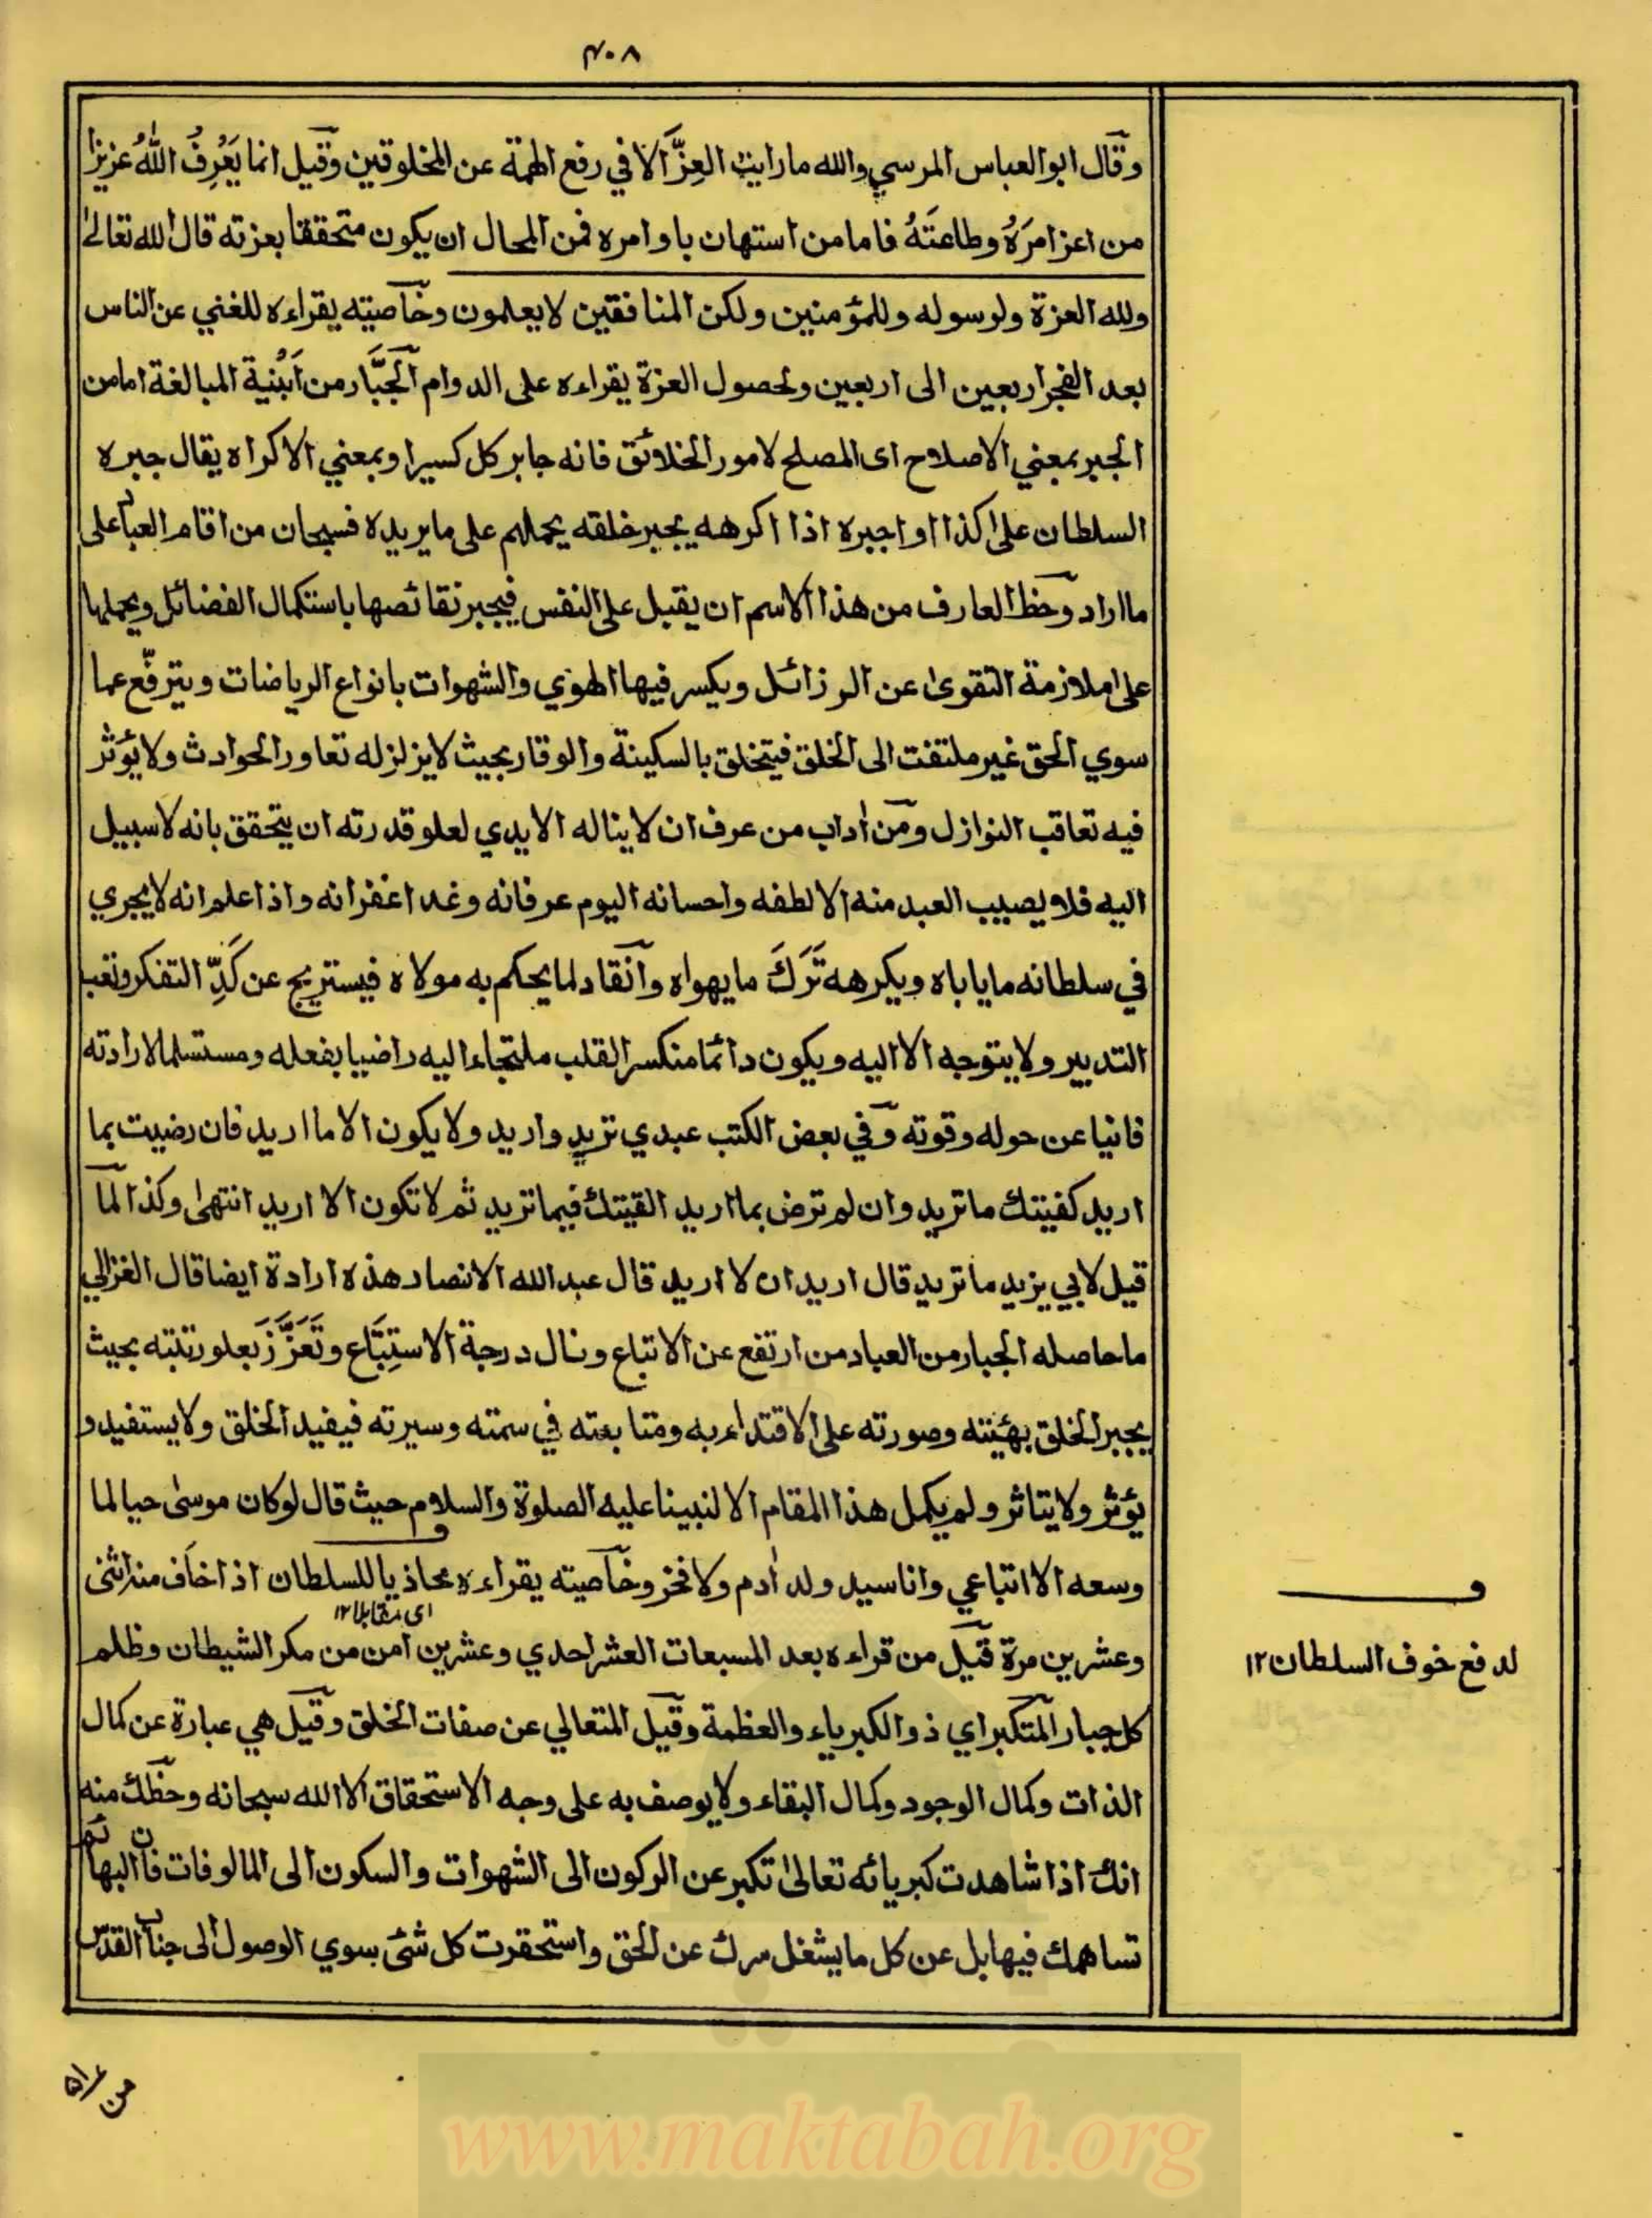 ۴۰۸
وقال ابو العباس المرسي والله ما رايت العِزَّ الا في رفع الهمة عن المخلوقين وقيل انما يَعْرِفُ اللهُ عزيزا
من اعز امرَهُ وطاعتَهُ فاما من استهان باوامره فمن المحال ان يكون متحققا بعزته قال الله تعالى
ولله العزة ولرسوله وللمؤمنين ولكن المنافقين لا يعلمون وخاصيته يقراءه للغني عن الناس
بعد الفجر اربعين الى اربعين ولحصول العزة يقراءه على الدوام الجَبَّار من اَبْنية المبالغة اما من
الجبر بمعني الاصلاح اى المصلح لامور الخلائق فانه جابر كل كسير او بمعني الاكراه يقال جبره
السلطان على كذا او اجبره اذا اكرهه يجبر خلقه يحملهم على ما يريده فسبحان من اقام العباد على
ما اراد وحظ العارف من هذا الاسم ان يقبل على النفس فيجبر نقائصها باستكمال الفضائل ويحملها
على ملازمة التقوى عن الرزائل ويكسر فيها الهوي والشهوات بانواع الرياضات ويترفّع عما
سوي الحق غير ملتفت الى الخلق فيتخلق بالسكينة والوقار بحيث لا يزلزله تعاور الحوادث ولا يؤثر
فيه تعاقب النوازل ومن اداب من عرف ان لا يناله الايدي لعلو قدرته ان يتحقق بانه لا سبيل
اليه فلا يصيب العبد منه الا لطفه واحسانه اليوم عرفانه وغدا غفرانه واذا علم انه لا يجري
في سلطانه ما ياباه ويكرهه تَرَكَ ما يهواه وانقاد لما يحكم به مولاه فيستريح عن كَدِّ التفكر وتعب
التدبير ولا يتوجه الا اليه ويكون دائما منكسر القلب ملتجاء اليه راضيا بفعله ومستسلما لارادته
فانيا عن حوله وقوته وفي بعض الكتب عبدي تريد واريد ولا يكون الا ما اريد فان رضيت بما
اريد كفيتك ما تريد وان لم ترض بما اريد القيتك فيما تريد ثم لا تكون الا اريد انتهى وكذا لما
قيل لابي يزيد ما تريد قال اريد ان لا اريد قال عبد الله الانصار هذه ارادة ايضا قال الغزالي
ما حاصله الجبار من العباد من ارتفع عن الاتباع ونال درجة الاستِتْبَاع وتَعَزَّزَ بعلو رتبته بحيث
يجبر الخلق بهيئته وصورته على الاقتداء به ومتابعته في سمته وسيرته فيفيد الخلق ولا يستفيد و
يؤثر ولا يتاثر ولم يكمل هذا المقام الا لنبينا عليه الصلوة والسلام حيث قال لو كان موسى حيا لما
وسعه الا اتباعي وانا سيد ولد ادم ولا فخر وخاصيته يقراءه محاذيا للسلطان اذا خاف منه اثنى
اى مقابلا ۱۲
وعشرين مرة قيل من قراءه بعد المسبعات العشر احدي وعشرين امن من مكر الشيطان وظلم
كل جبار المتكبر اي ذو الكبرياء والعظمة وقيل المتعالي عن صفات الخلق وقيل هي عبارة عن كمال
الذات وكمال الوجود وكمال البقاء ولا يوصف به على وجه الاستحقاق الا الله سبحانه وحظك منه
انك اذا شاهدت كبريائه تعالى تكبر عن الركون الى الشهوات والسكون الى المالوفات فان البهائم
تساهمك فيها بل عن كل ما يشغل سرك عن الحق واستحقرت كل شئ سوي الوصول الى جناب القدس
لدفع خوف السلطان ۱۲
www.maktabah.org